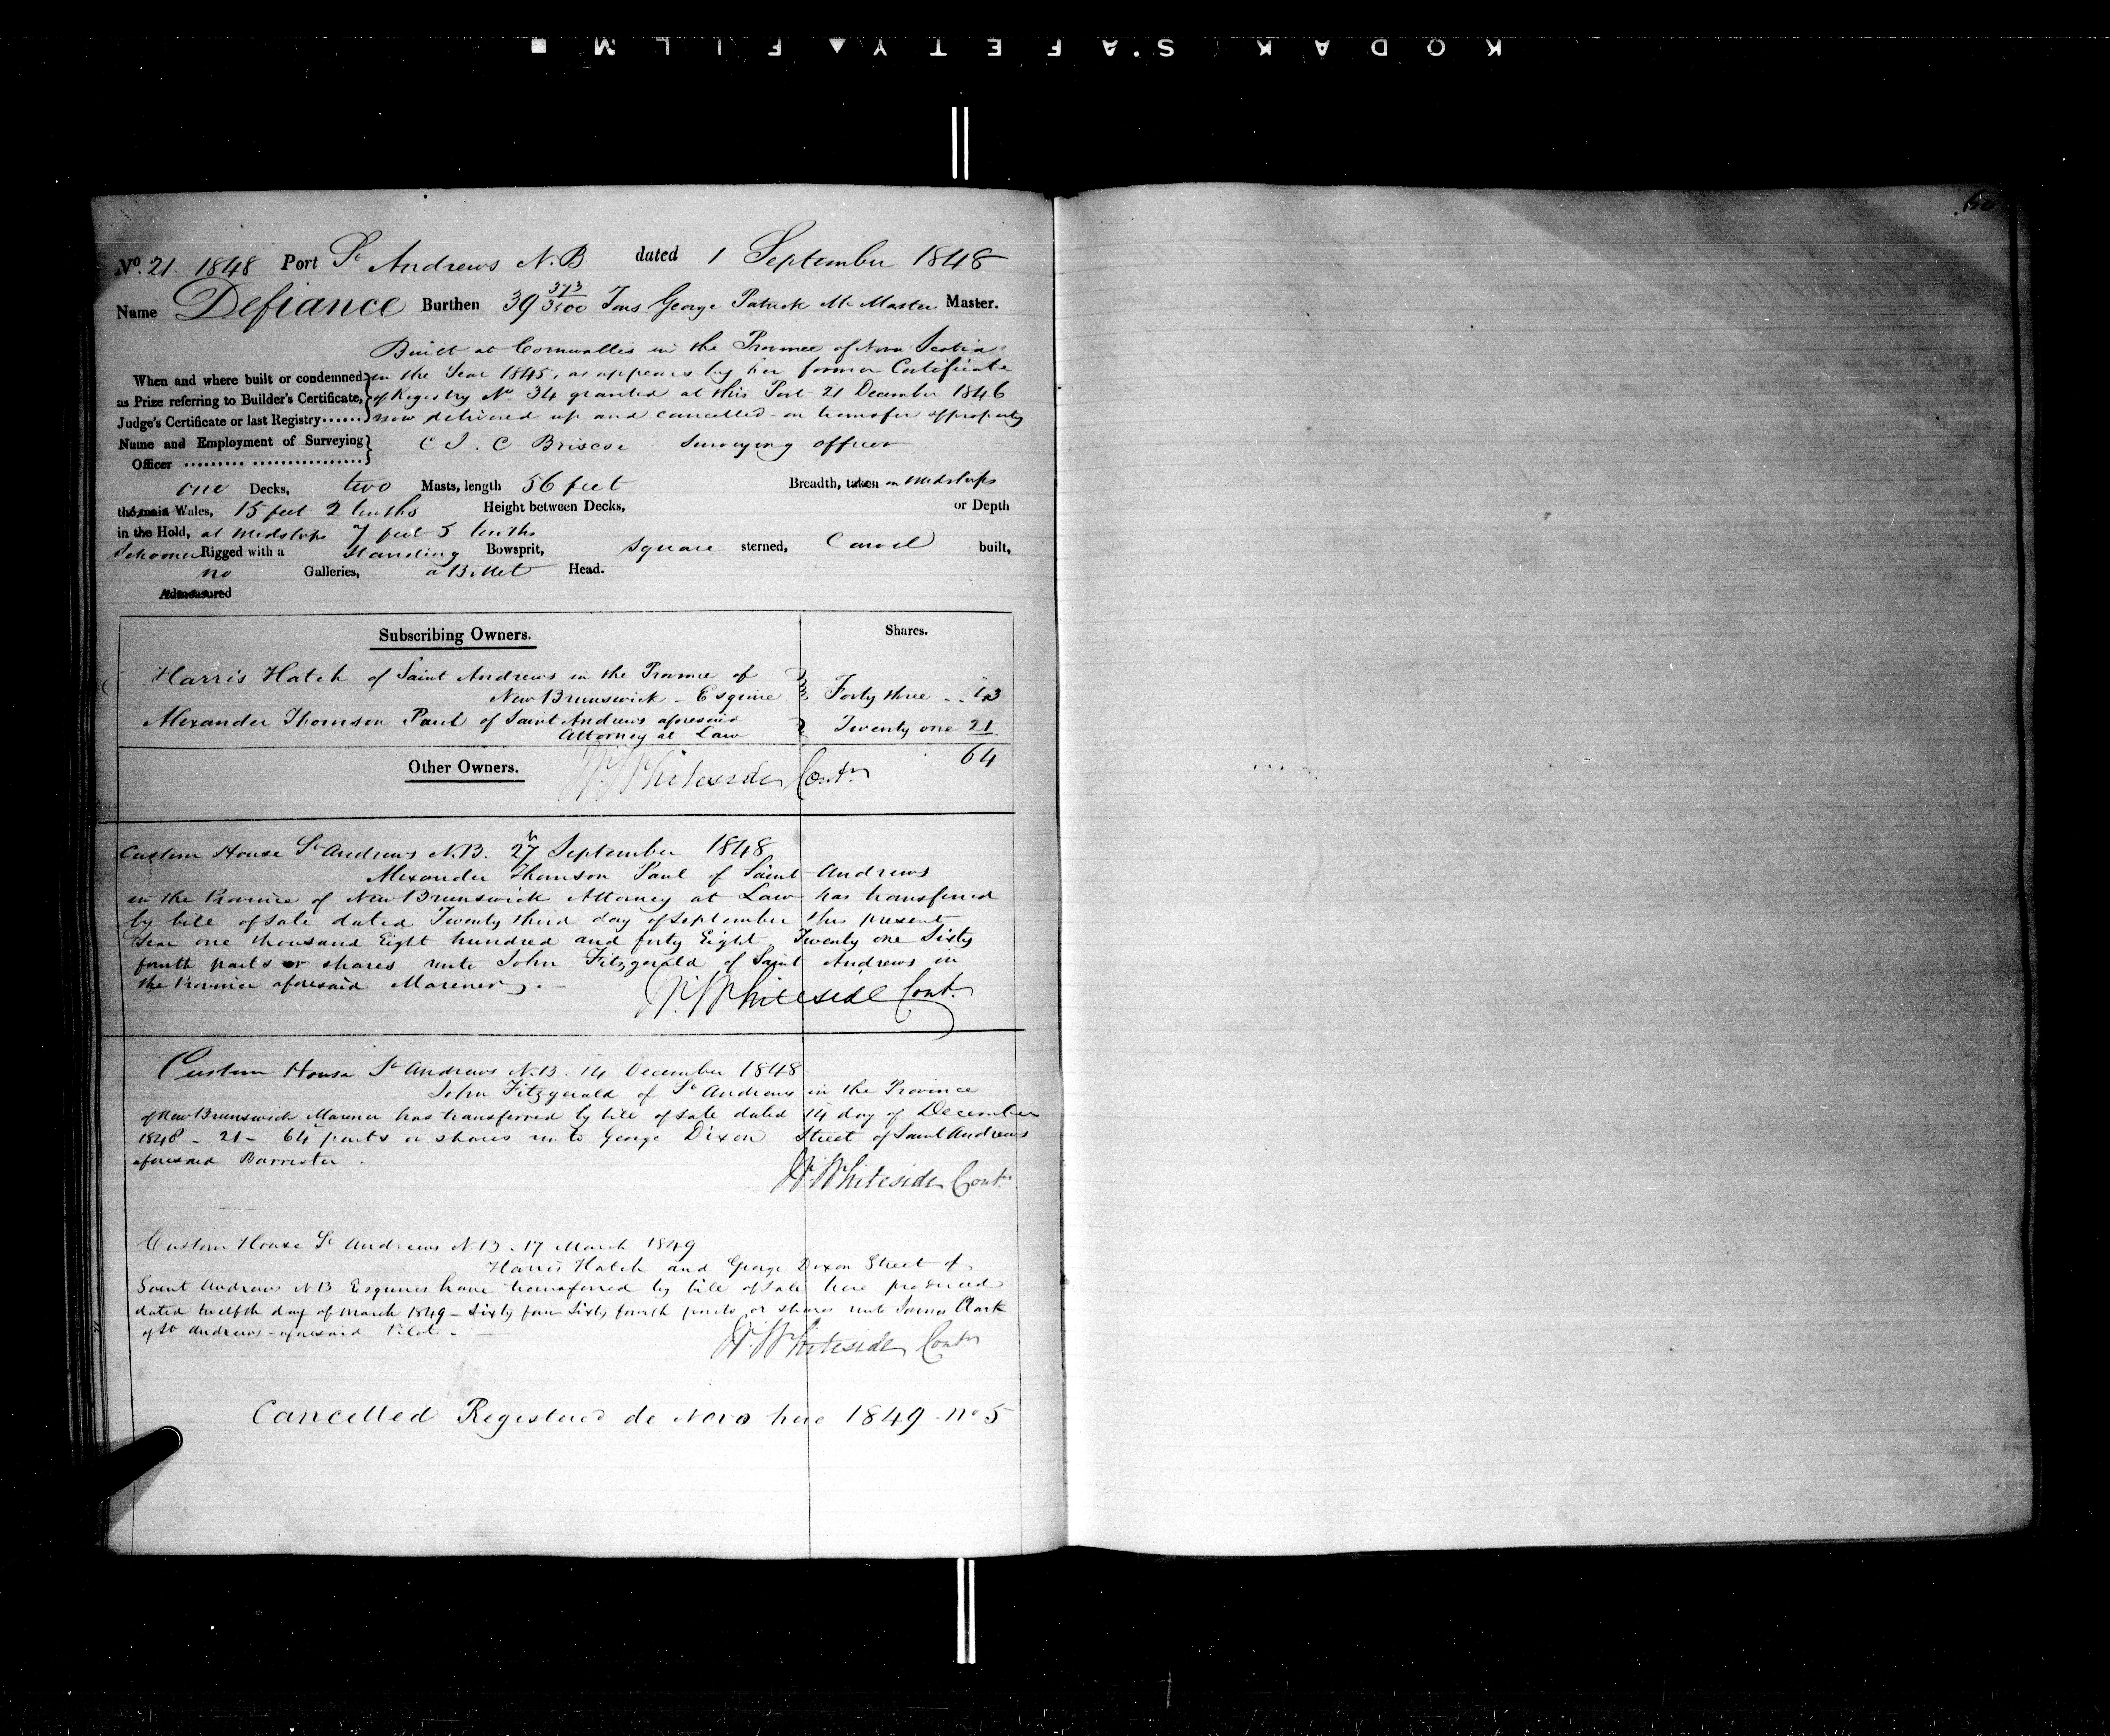 KODAK SAFETY FILM
60
No. 21. 1848 Port St Andrews N.B dated 1 September 1848
Name Defiance Burthen 39 373/3500 Tons George Patrick McMaster Master.
Built at Cornwallis in the Province of Nova Scotia
When and where built or condemned in the Year 1845, as appears by her former Certificate
as Prize referring to Builder's Certificate, of Registry No. 34 granted at this Port 21 December 1846
Judge's Certificate or last Registry...... now delivered up and cancelled on transfer of property
Name and Employment of Surveying C J. C Briscoe Surveying officer
Officer ......... ................
one Decks, two Masts, length 56 feet Breadth, taken on Midships
the main Wales, 15 feet 2 tenths Height between Decks, or Depth
in the Hold, at Midships 7 feet 5 tenths
Schooner Rigged with a Standing Bowsprit, Square sterned, Carvel built,
no Galleries, a Billet Head.
Admeasured
Subscribing Owners. Shares.
Harris Hatch of Saint Andrews in the Province of
New Brunswick - Esquire Forty three .. 43
Alexander Thomson Paul of Saint Andrews aforesaid
Attorney at Law Twenty one 21
64
Other Owners. W. Whiteside Contr
Custom House St Andrews N.B. 27 September 1848
Alexander Thomson Paul of Saint Andrews
in the Province of New Brunswick Attorney at Law has transferred
by bill of sale dated Twenty third day of September this present
Year one thousand Eight hundred and forty Eight Twenty one Sixty
fourth parts or shares unto John Fitzgerald of Saint Andrews in
the Province aforesaid Mariner. -
W. Whiteside Contr
Custom House St Andrews N.B. 14 December 1848
John Fitzgerald of St Andrews in the Province
of New Brunswick Mariner has transferred by bill of sale dated 14 day of December
1848 - 21 - 64 parts or shares unto George Dixon Street of Saint Andrews
aforesaid Barrister.
W. Whiteside Contr
Custom House St Andrews N.B. 17 March 1849
Harris Hatch and George Dixon Street of
Saint Andrews N B Esquires have transferred by bill of sale here produced
dated twelfth day of March 1849 - Sixty four Sixty fourth parts or shares unto James Clark
of St Andrews - aforesaid Pilot. -
W. Whiteside Contr
Cancelled Registered de Novo here 1849 - No 5